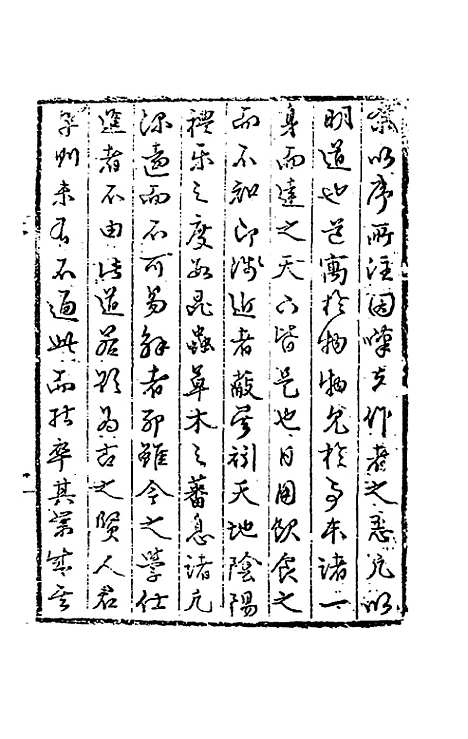 以序所注因嘆其作者之意凡以
明道也道寓於物物見於事本諸一
身而達之天下皆是也日用飲食之
而不知即淺近者蔽焉引天地陰陽
禮樂之度數昆蟲草木之蕃息諸凡
深遠而不可易解者耶雖今之學仕
進者不由法道若欲為古之賢人君
子則未有不通此而能卒其業